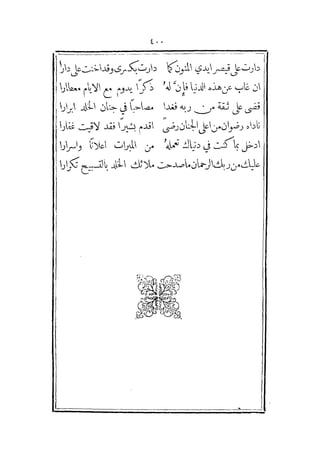 ٤٠٠
دارت على قيصر ايدي المنون كما دارت بكسرى وقد اخنت على دارا
ان غاب عن هذه الدنيا فإنَّ لهُ ذكرًا يدوم مع الايام معطارا
قضى على ثقة من ربه فغدا مصاحبًا في جنان الخلد ابرارا
ناداه رضوان من اعلى الجنان رضىً اقدم بشيرًا فقد لاقيت غفارا
ادخل بما كنت في دنياك تعملهُ من المبرات اعلانًا واسرارا
عليك من ربك الرحمان ما صدحت ملائك الخلد بالتسبيح تكرارا